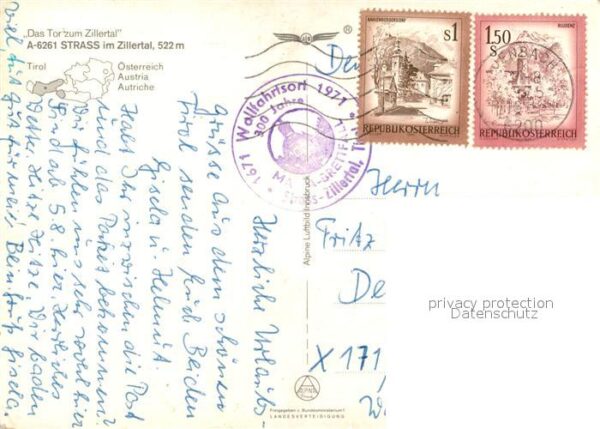 „Das Tor zum Zillertal"
A-6261 STRASS im Zillertal, 522 m
Tirol
Österreich
Austria
Autriche
Herzliche Urlaubs-
Grüße aus dem schönen
Tirol senden Euch Beiden
Gisela u. Helmut.
Habt Ihr inzwischen die Post
und das Paket bekommen?
Wir fühlen uns sehr wohl hier
sind ab 5.8. hier. Herrliches
Wetter, Hitze, Hitze. Wir baden
viel, tut gut für mein Bein. Gruß Gisela
1671 Wallfahrtsort 1971
300 Jahre
Strass-Zillertal, Ti
Alpine Luftbild Innsbruck
KARDENREGOSDORF
S1
REPUBLIK ÖSTERREICH
BLUDENZ
1,50
S
REPUBLIK ÖSTERREICH
JENBACH
Herrn
Fritz
De
X 171
privacy protection
Datenschutz
ALPINE
Freigegeben v. Bundesministerium f.
LANDESVERTEIDIGUNG